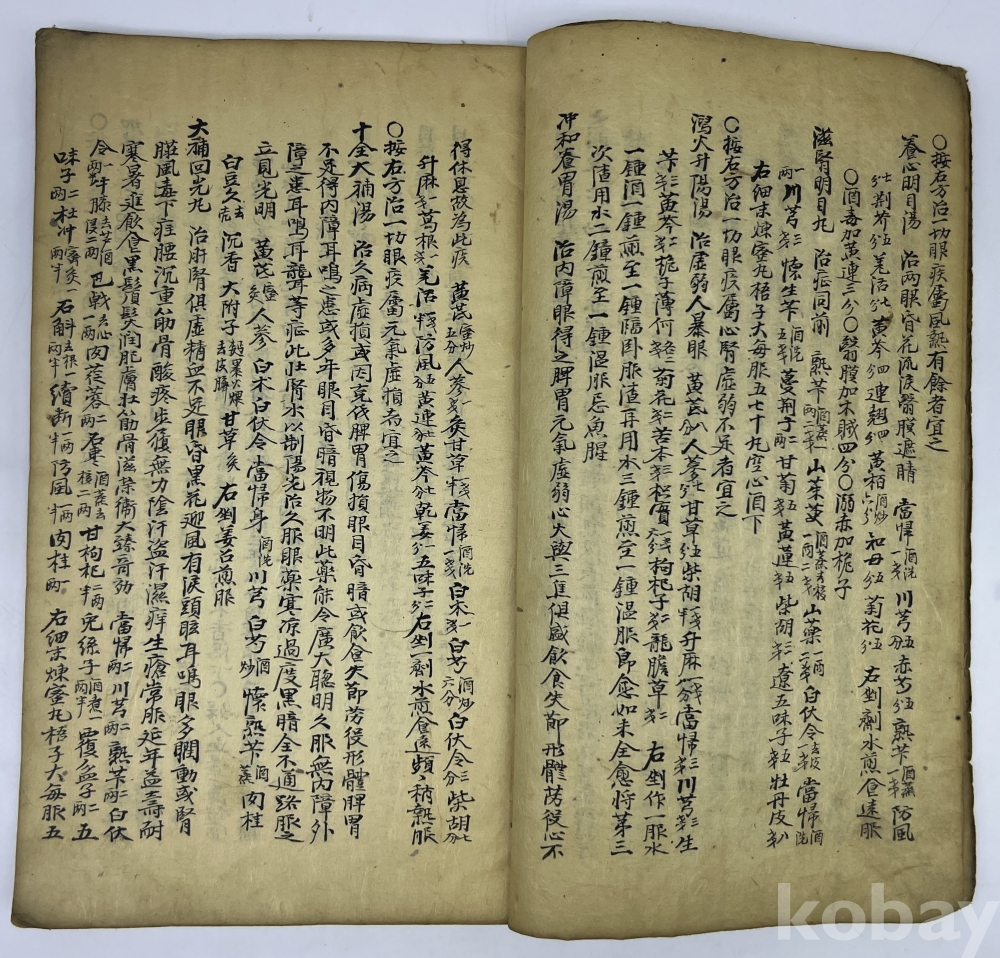 〇按右方治一切眼疾屬風熱有餘者宜之
養心明目湯 治兩眼昏花流淚翳膜遮睛 當歸酒洗一戔 川芎五分 赤芍五分 熟苄酒蒸一戔 防風
七分 荆芥五分 羌活七分 黃芩四分 連翹四分 黃栢酒炒六分 知母五分 菊花五分 右剉劑水煎食遠服
〇酒毒加黃連三分〇翳膜加木賊四分〇溺赤加梔子
滋腎明目丸 治症同前 熟苄酒蒸一兩二戔 山茱萸酒蒸去核一兩二戔 山藥一兩二戔 白伏令去皮一戔 當帰酒洗
一兩 川芎三戔 懷生苄酒洗五戔 蔓荆子二兩 甘菊五戔 黃蓮五戔 柴胡三戔 遼五味子五戔 牡丹皮八
右細末煉蜜丸梧子大每服五七十丸空心酒下
〇按右方治一切眼疾屬心腎虛弱不足者宜之
瀉火升陽湯 治虛弱人暴眼 黃芪八分 人蔘七分 甘草五分 柴胡戔半 升麻一戔 當帰二戔 川芎三戔 生
苄三戔 黃芩二戔 梔子 薄何 菊花二戔 苦本三戔 枸杞子二戔 龍膽草二戔 右剉作一服水
一鍾酒一鍾煎至一鍾臨卧服渣再用水三鍾煎至一鍾溫服卽愈如未全愈将苐三
次渣用水二鍾煎至一鍾溫服忌魚腥
冲和養胃湯 治内障眼得之脾胃元氣虛弱心火與三焦俱盛飲食失節形體劳役心不
得休息故為此疾 黃芪蜜炒五分 人蔘戔 炙甘草戔半 當帰酒洗一戔 白术一戔 白芍酒炒六分 白伏令三分 柴胡七分
升麻一戔 葛根一戔 羌活戔半 防風五分 黃連七分 黃芩七分 乾姜一分 五味子二分 右剉一劑水煎食遠頻〻稍熱服
〇按右方治一切眼疾屬元氣虛損者宜之
十全大補湯 治久病虛損或因克伐脾胃傷損眼目昏暗或飮食失節劳役形體脾胃
不足得内障耳鳴之患或多年眼目昏暗視物不明此藥能令廣大聦明久服無内障外
障之患耳鳴耳聾等症此壯腎水以制陽光治久服服藥寒凉過度黑暗全不通路服之
立見光明 黃芪蜜炙 人参 白术 白伏令 當帰身酒洗 川芎 白芍酒炒 懷熟苄酒蒸 肉桂
白豆久去壳 沉香 大附子麪裹火煨去皮臍 甘草炙 右剉姜召煎服
大補回光丸 治肝腎俱虛精血不足眼昏黑花迎風有淚頭眩耳鳴眼多瞤動或腎
臟風毒下疰腰沉重筋骨酸疼步履無力陰汗盗汗濕痒生瘡常服延年益壽耐
寒暑進飮食黑鬚髮潤肥膚壮筋骨滋荣衛大臻奇効 當帰二兩 川芎二兩 熟苄二兩 白伏
令一兩半 牛膝去芦酒浸二兩 巴戟去心一兩 肉苁蓉二兩 石枣酒蒸去核二兩 甘枸杞一兩半 兎絲子酒煮一兩半 覆盆子二兩 五
味子二兩 杜冲薺炙一兩半 石斛去根一兩半 續断一兩半 防風一兩半 肉桂一兩 右細末煉蜜丸梧子大每服五
kobay